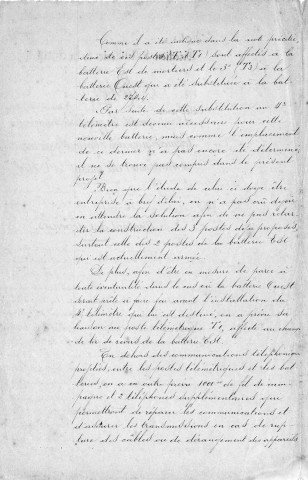 Comme il a été indiqué dans la note précé-
dente de ces postes T1 T2 sont affectés à la
batterie Est de mortiers et le 3e T3 à la
batterie Ouest qui a été substituée à la bat-
terie de
Par suite de cette substitution un 4e
télémètre est devenu nécessaire pour cette
nouvelle batterie, mais comme l'emplacement
de ce dernier n'a pas encore été déterminé,
il ne se trouve pas compris dans le présent
projet.
Bien que l'étude de celui ci doive être
entreprise à bref délai, on n'a pas cru devoir
en attendre la solution afin de ne pas retar-
der la construction des 3 postes déjà proposés,
surtout celle des 2 postes de la batterie Est
qui est actuellement armée.
De plus, afin d'être en mesure de parer à
toute éventualité dans le cas où la batterie Ouest
serait prête à agir avant l'installation du
4e télémètre qui lui est destiné, on a prévu sa
liaison au poste télémétrique T1, affecté au champ
de tir de revers de la batterie Est.
En dehors des communications téléphoniques
projetées, entre les postes télémétriques et les bat-
teries, on a en outre prévu 1000m de fil de cam-
pagne et 2 téléphones supplémentaires qui
permettront de réparer les communications et
d'assurer les transmissions en cas de rup-
ture des câbles ou de dérangement des appareils